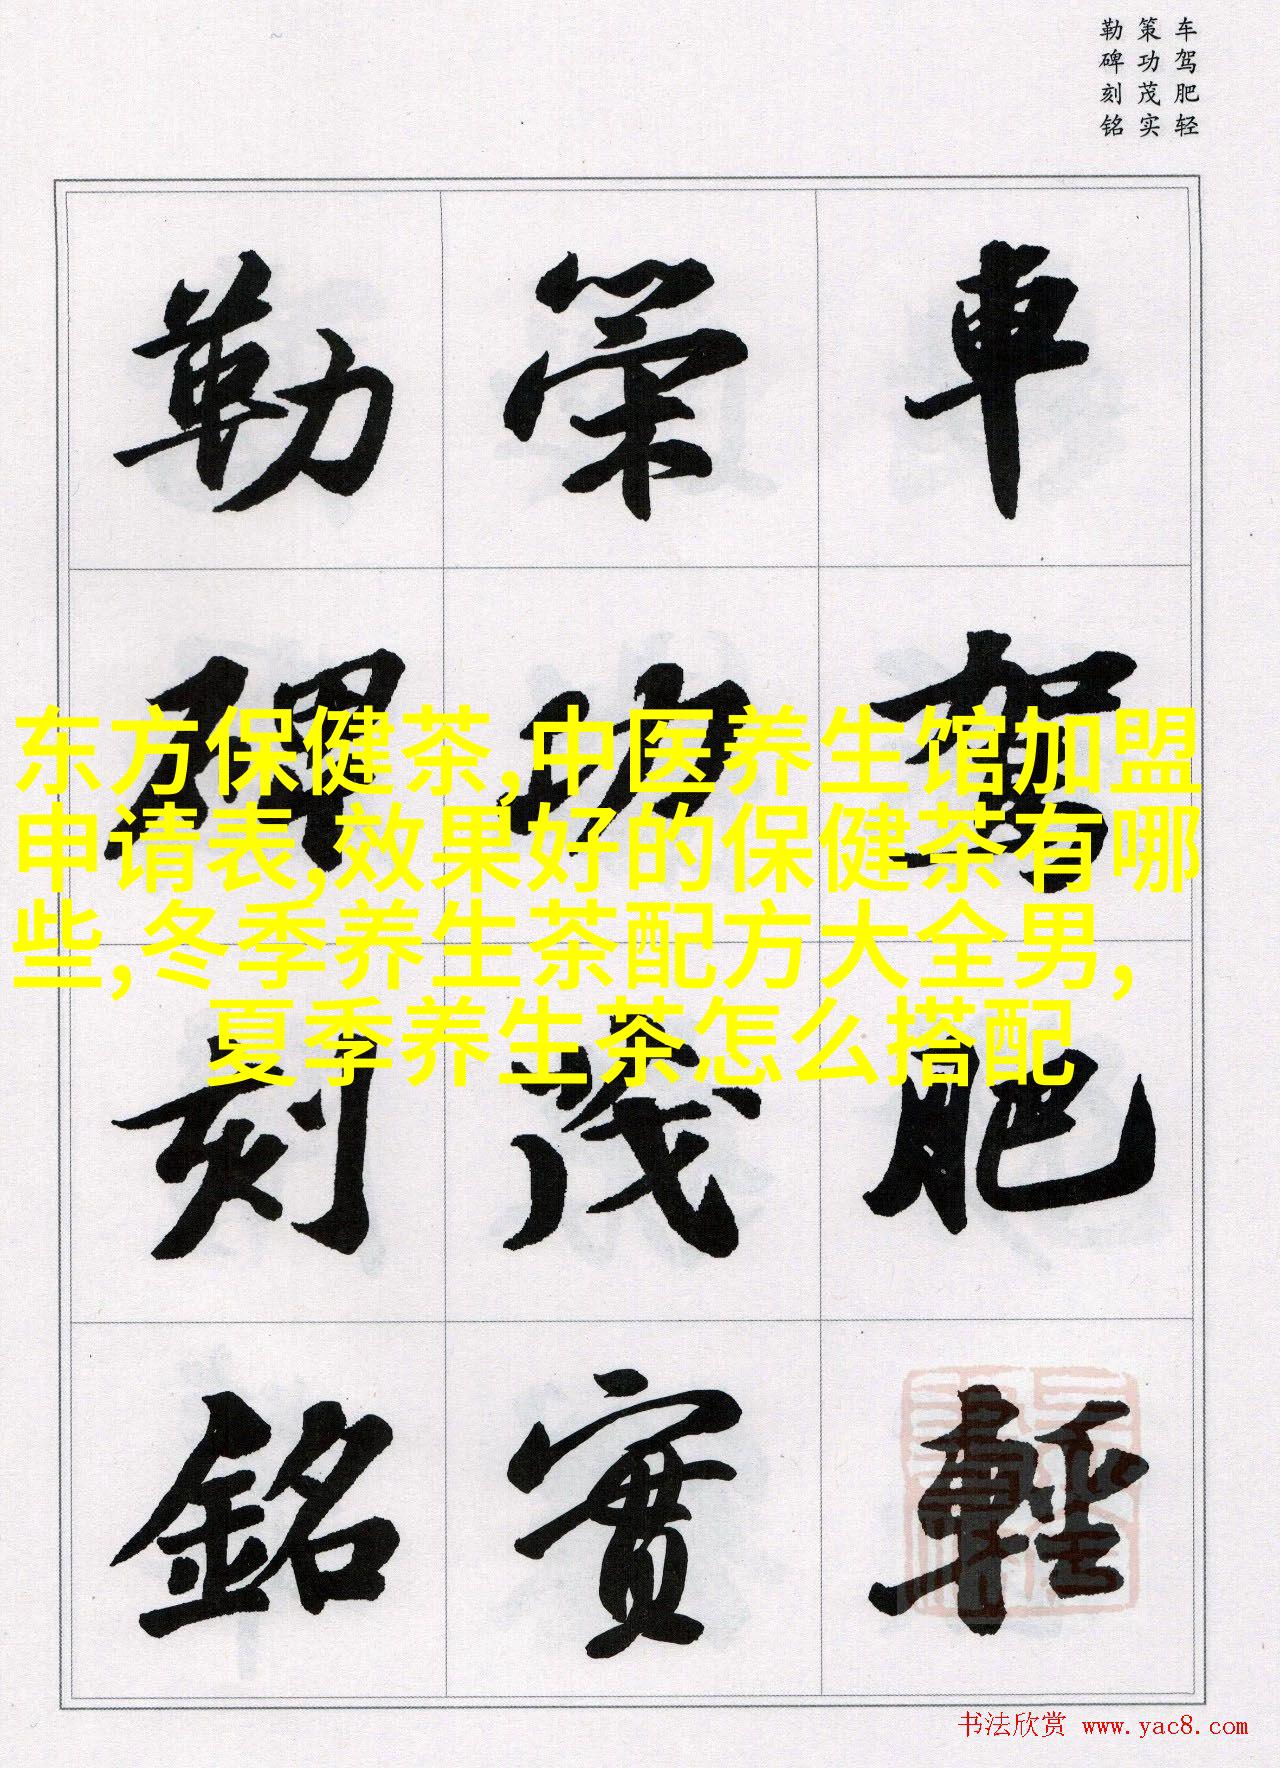 车驾肥轻
策功茂实
勒碑刻铭
車駕肥輕
策功茂實
勒碑刻銘
东方保健茶,中医养生馆加盟
申请表,效果好的保健茶有哪
些,冬季养生茶配方大全男,
夏季养生茶怎么搭配
书法欣赏 www.yac8.com